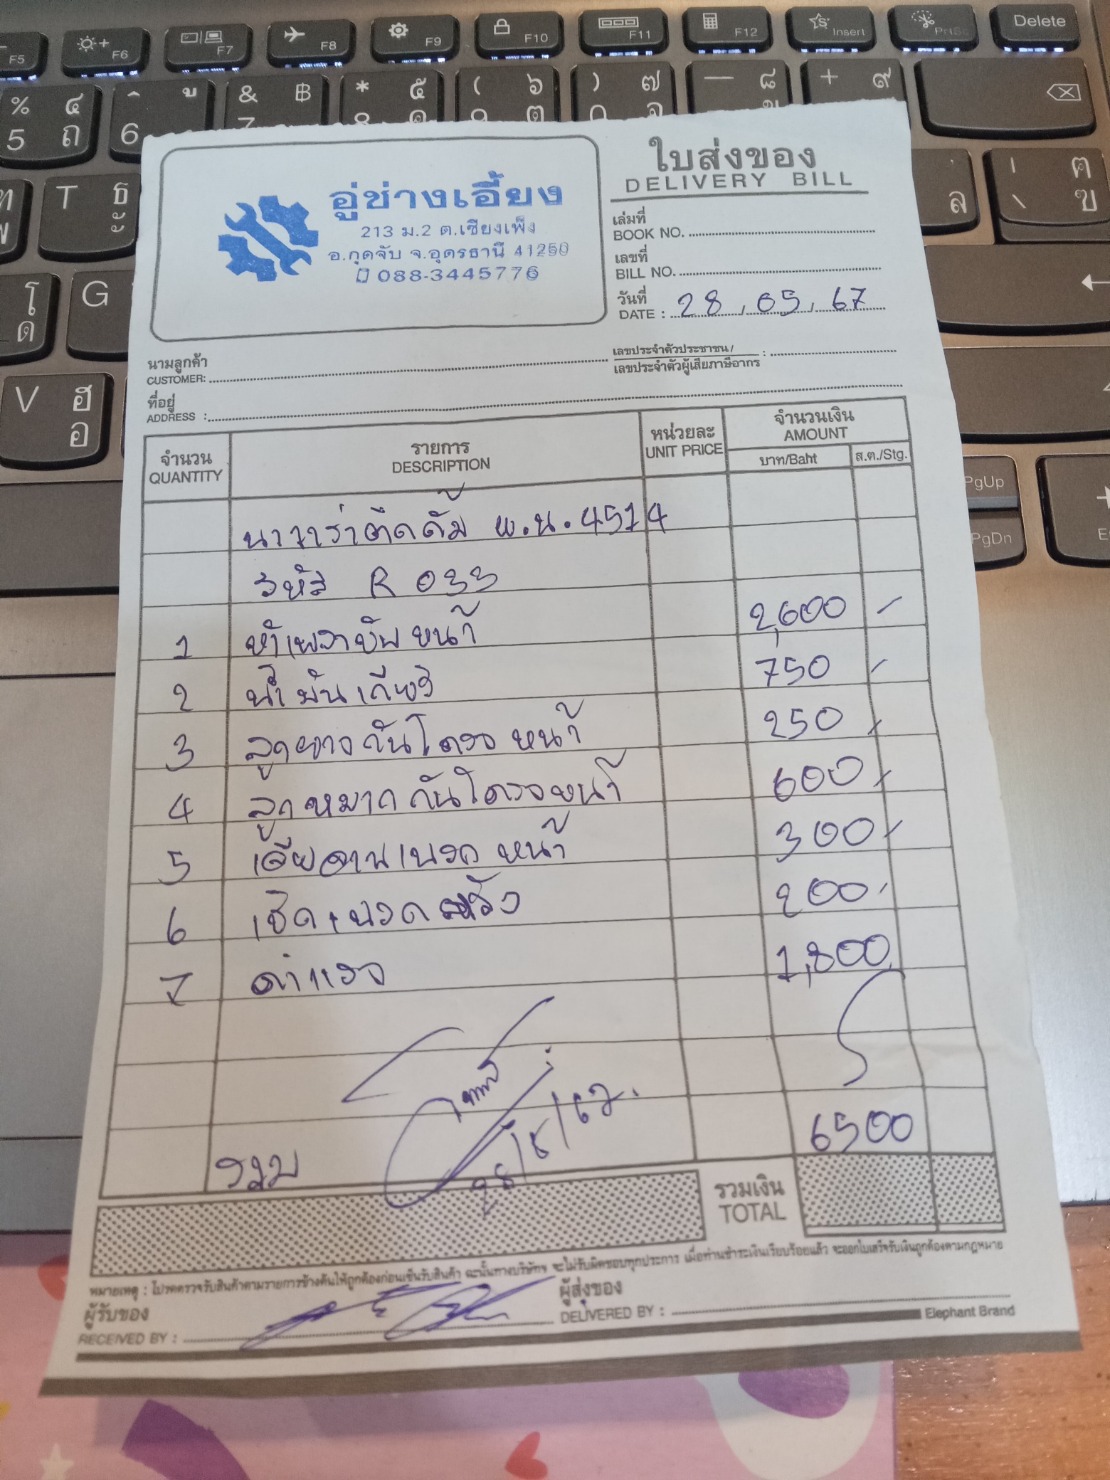 ใบส่งของ
DELIVERY BILL
อู่ช่างเอี้ยง
213 ม.2 ต.เชียงเพ็ง
อ.กุดจับ จ.อุดรธานี 41250
088-3445776
เล่มที่
BOOK NO.
เลขที่
BILL NO.
วันที่
DATE : 28 , 05 , 67
นามลูกค้า
CUSTOMER:
เลขประจำตัวประชาชน /
เลขประจำตัวผู้เสียภาษีอากร :
ที่อยู่
ADDRESS :
จำนวน รายการ หน่วยละ จำนวนเงิน
QUANTITY DESCRIPTION UNIT PRICE AMOUNT
บาท/Baht ส.ต./Stg.
นาวาร่าติดดั้ม พ.น. 4514
รหัส R 033
1 หัวเพลาขับหน้า 2,600 -
2 น้ำมันเกียร์ 750 -
3 ลูกยางกันโครงหน้า 250 -
4 ลูกหมากกันโครงหน้า 600 -
5 เจียจานเบรคหน้า 300 -
6 เช็ดเบรคหลัง 200 -
7 ค่าแรง 1,800
28/5/67.
รวม 6500
รวมเงิน
TOTAL
หมายเหตุ : โปรดตรวจรับสินค้าตามรายการข้างต้นให้ถูกต้องก่อนเซ็นรับสินค้า ฉะนั้นทางบริษัทฯ จะไม่รับผิดชอบทุกประการ เมื่อท่านชำระเงินเรียบร้อยแล้ว จะออกใบเสร็จรับเงินถูกต้องตามกฎหมาย
ผู้รับของ
RECEIVED BY :
ผู้ส่งของ
DELIVERED BY :
Elephant Brand